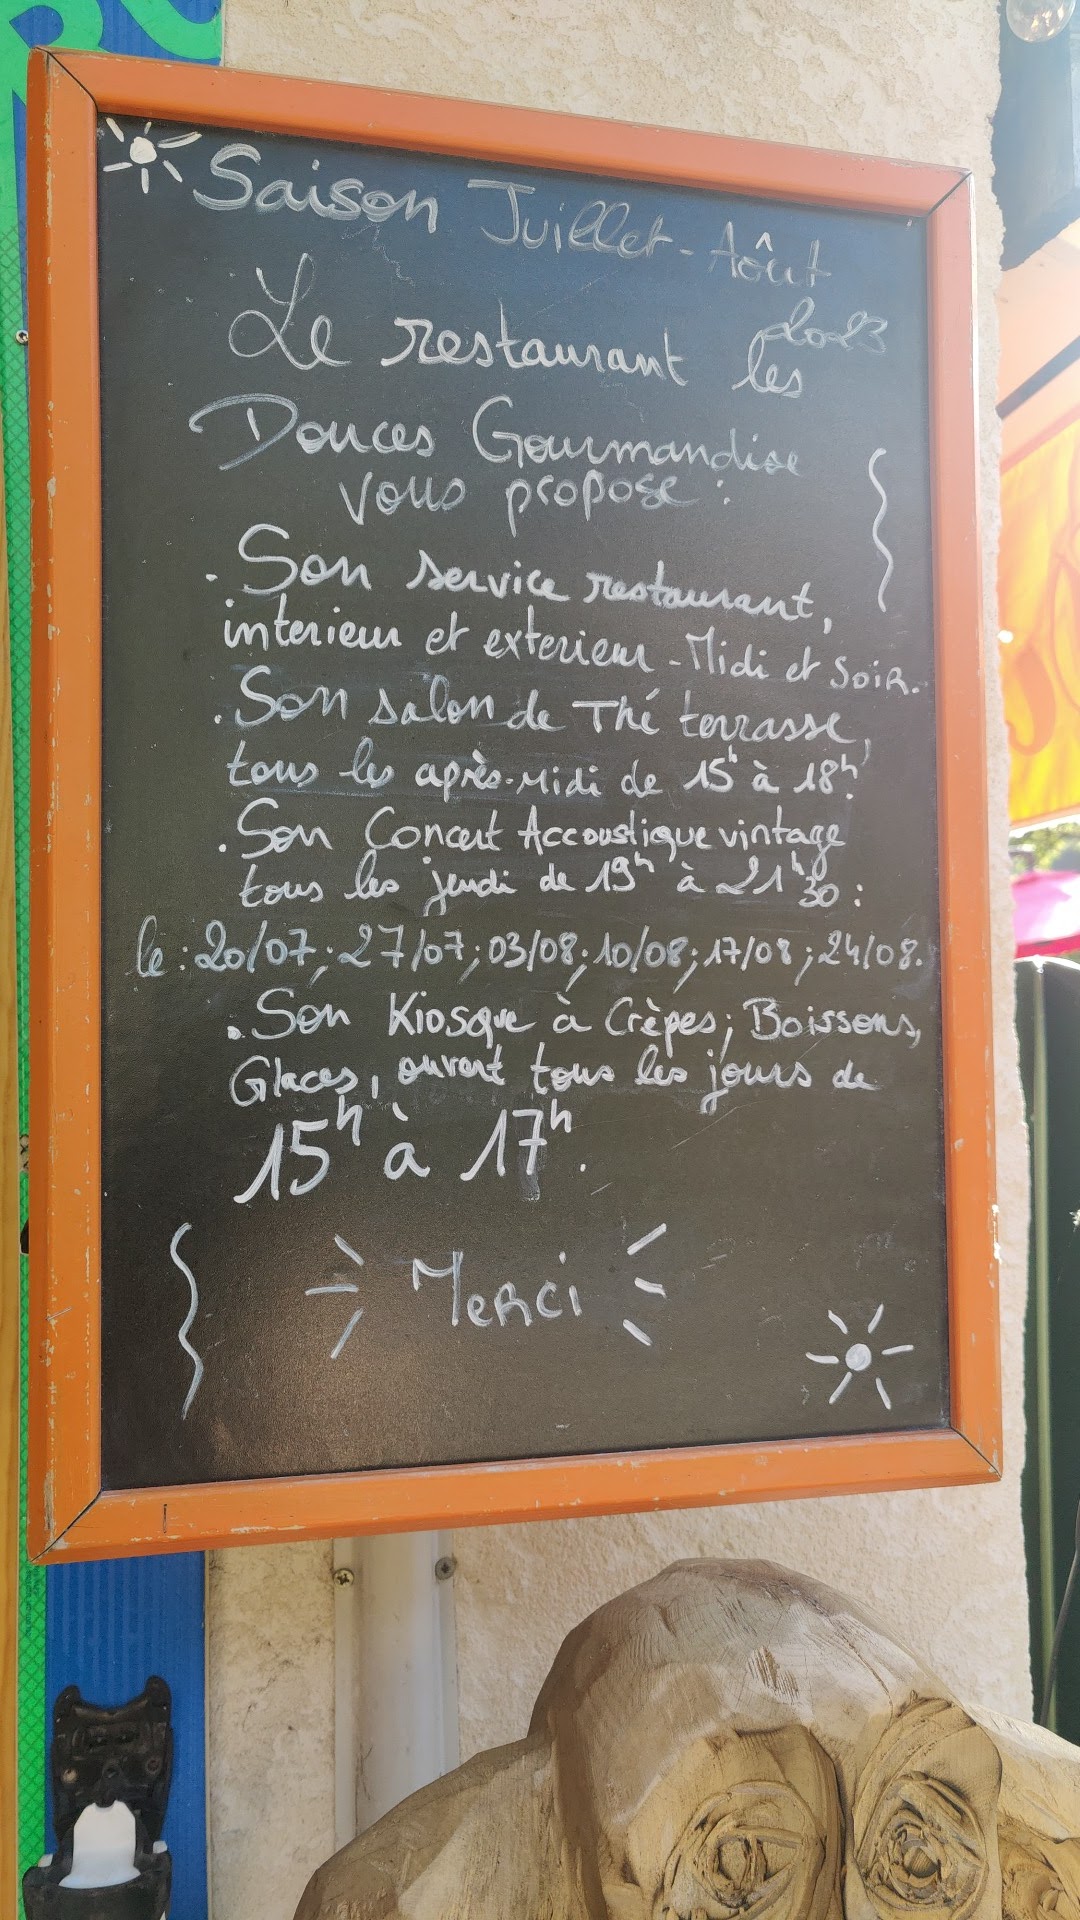 Saison Juillet-Aôut
2023
Le restaurant les
Douces Gourmandise
vous propose :
. Son service restaurant,
interieur et exterieur - Midi et Soir.
. Son salon de Thé terrasse,
tous les après-midi de 15h à 18h.
. Son Concert Accoustique vintage
tous les jeudi de 19h à 21h30 :
le : 20/07 ; 27/07 ; 03/08 ; 10/08 ; 17/08 ; 24/08.
. Son Kiosque à Crèpes ; Boissons,
Glaces, ouvert tous les jours de
15h à 17h.
Merci